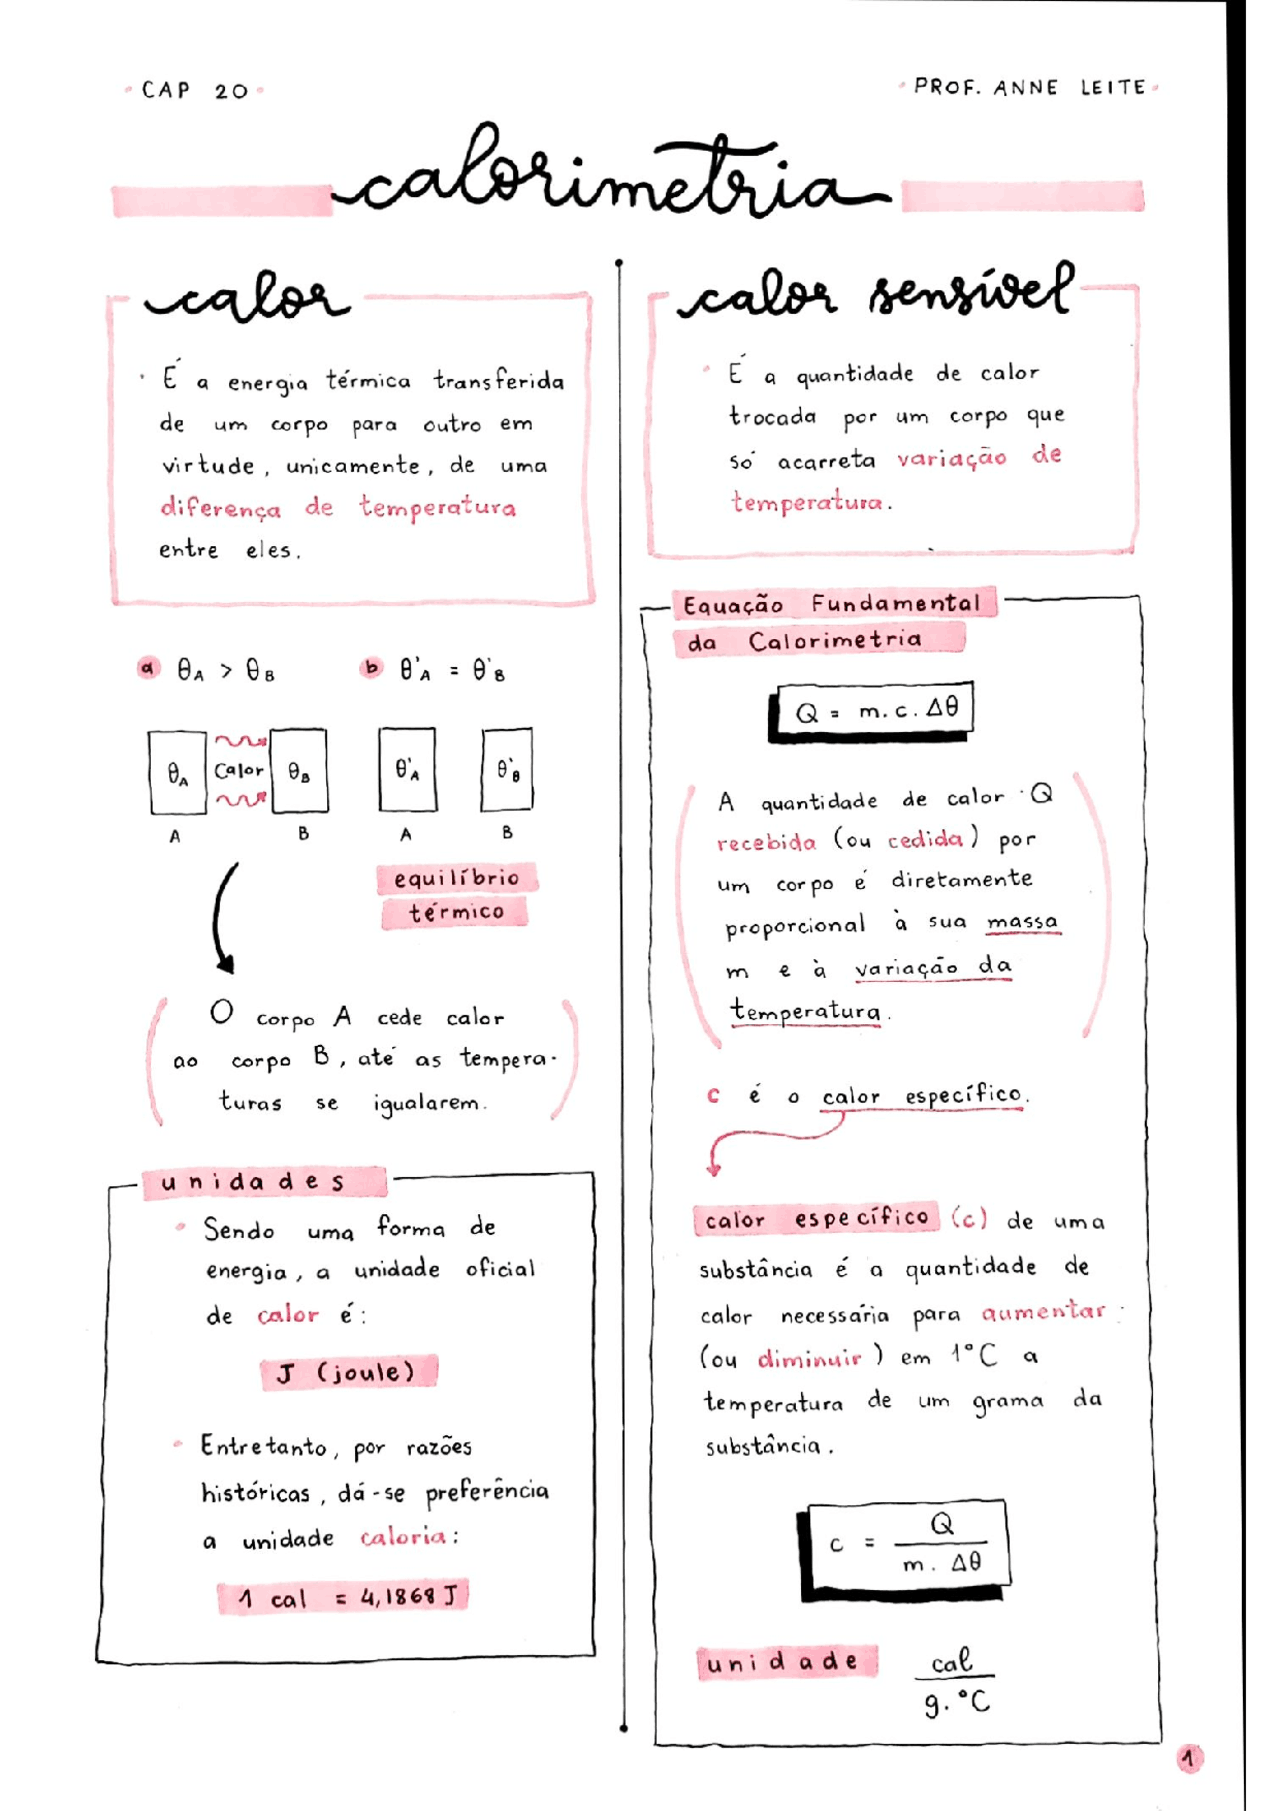 CAP 20
PROF. ANNE LEITE
calorimetria
calor
É a energia térmica transferida
de um corpo para outro em
virtude, unicamente, de uma
diferença de temperatura
entre eles.
a θA > θB
b θ'A = θ'B
θA Calor θB
A B
θ'A θ'B
A B
equilíbrio
térmico
O corpo A cede calor
ao corpo B, até as tempera-
turas se igualarem.
unidades
Sendo uma forma de
energia, a unidade oficial
de calor é:
J (joule)
Entretanto, por razões
históricas, dá-se preferência
a unidade caloria:
1 cal = 4,1868 J
calor sensível
É a quantidade de calor
trocada por um corpo que
só acarreta variação de
temperatura.
Equação Fundamental
da Calorimetria
Q = m.c.Δθ
A quantidade de calor Q
recebida (ou cedida) por
um corpo é diretamente
proporcional à sua massa
m e à variação da
temperatura.
c é o calor específico.
calor específico (c) de uma
substância é a quantidade de
calor necessária para aumentar
(ou diminuir) em 1°C a
temperatura de um grama da
substância.
c = Q
m. Δθ
unidade cal
g.°C
1